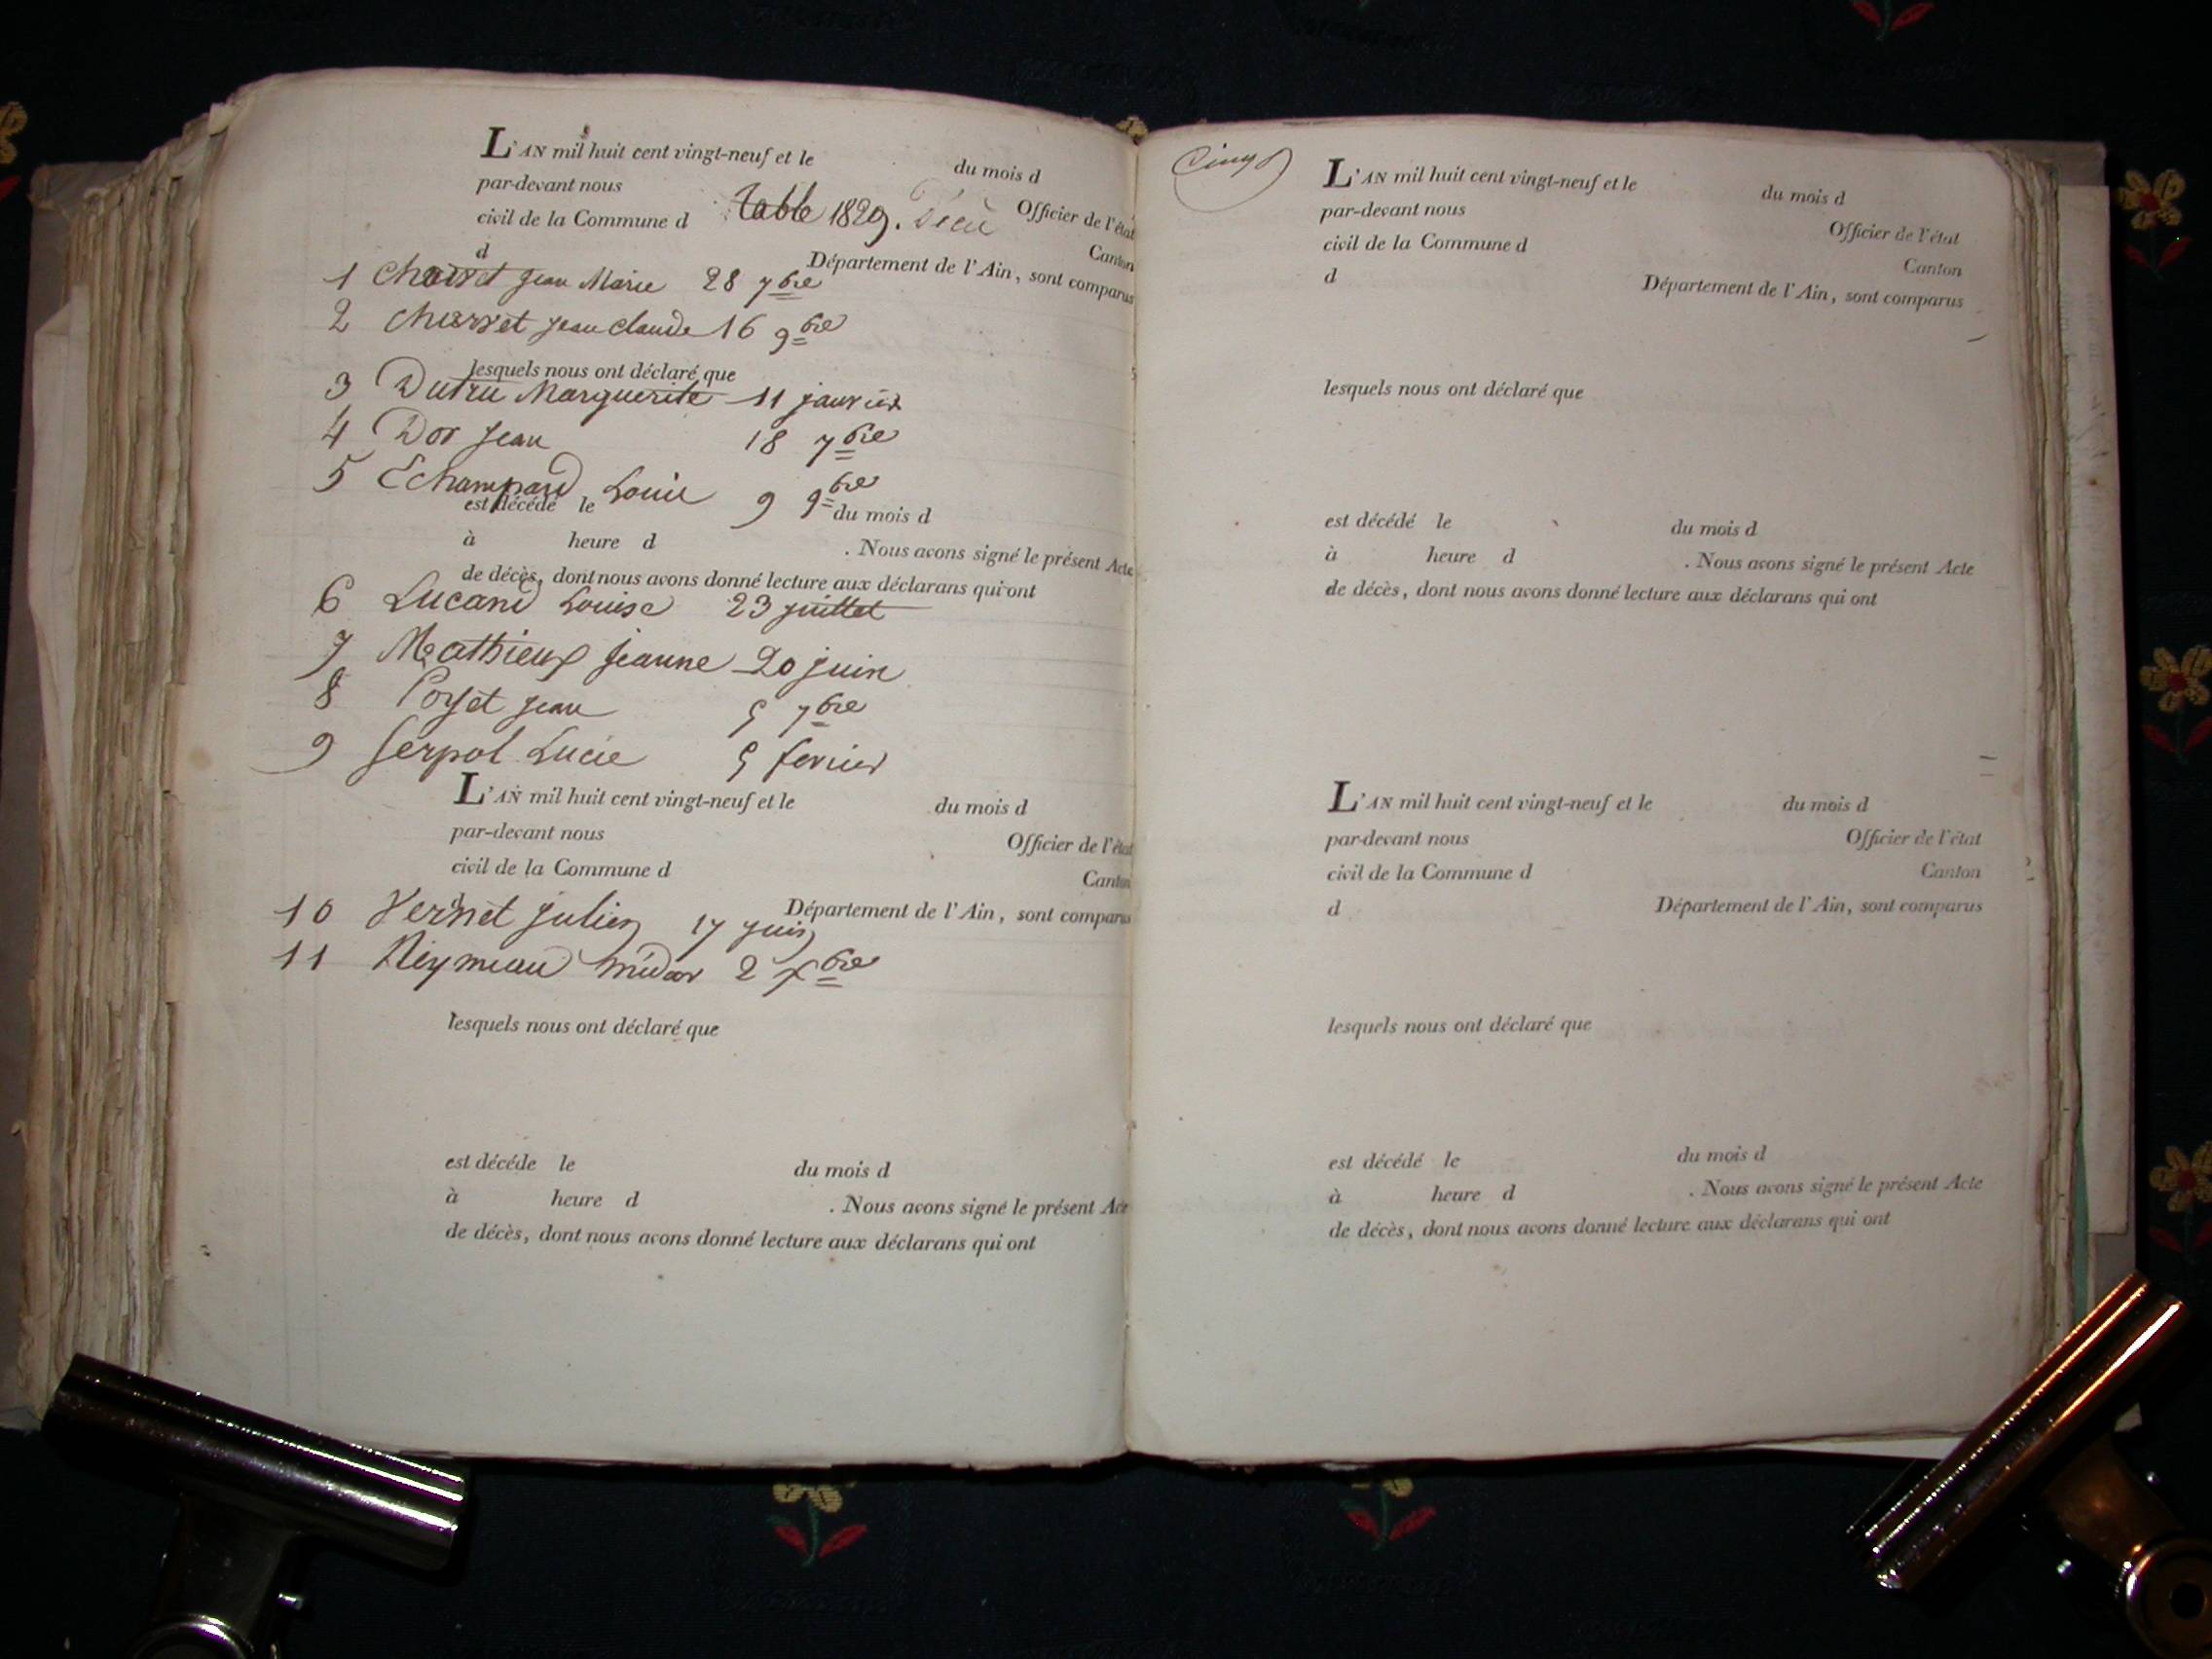 L'AN mil huit cent vingt-neuf et le du mois d
par-devant nous Officier de l'état
civil de la Commune d table 1829. Canton
d Département de l'Ain, sont comparus
1 Jean Marie 28 7bre
2 jean claude 16 9bre
lesquels nous ont déclaré que
3 Dutru Marguerite 11 janvier
4 Dor Jean 18 7bre
5 Echampard Louis 9 9bre
est décédé le du mois d
à heure d . Nous avons signé le présent Acte
de décès, dont nous avons donné lecture aux déclarans qui ont
6 Lucand Louise 23 juillet
7 Mathieux jeanne 20 juin
8 jean 5 7bre
9 Serpol Lucie 5 fevrier
L'AN mil huit cent vingt-neuf et le du mois d
par-devant nous Officier de l'état
civil de la Commune d Canton
Département de l'Ain, sont comparus
10 Vernet julien 17 juin
11 2 Xbre
lesquels nous ont déclaré que
est décéde le du mois d
à heure d . Nous avons signé le présent Acte
de décès, dont nous avons donné lecture aux déclarans qui ont
L'AN mil huit cent vingt-neuf et le du mois d
par-devant nous Officier de l'état
civil de la Commune d Canton
d Département de l'Ain, sont comparus
lesquels nous ont déclaré que
est décédé le du mois d
à heure d . Nous avons signé le présent Acte
de décès, dont nous avons donné lecture aux déclarans qui ont
L'AN mil huit cent vingt-neuf et le du mois d
par-devant nous Officier de l'état
civil de la Commune d Canton
d Département de l'Ain, sont comparus
lesquels nous ont déclaré que
est décédé le du mois d
à heure d . Nous avons signé le présent Acte
de décès, dont nous avons donné lecture aux déclarans qui ont